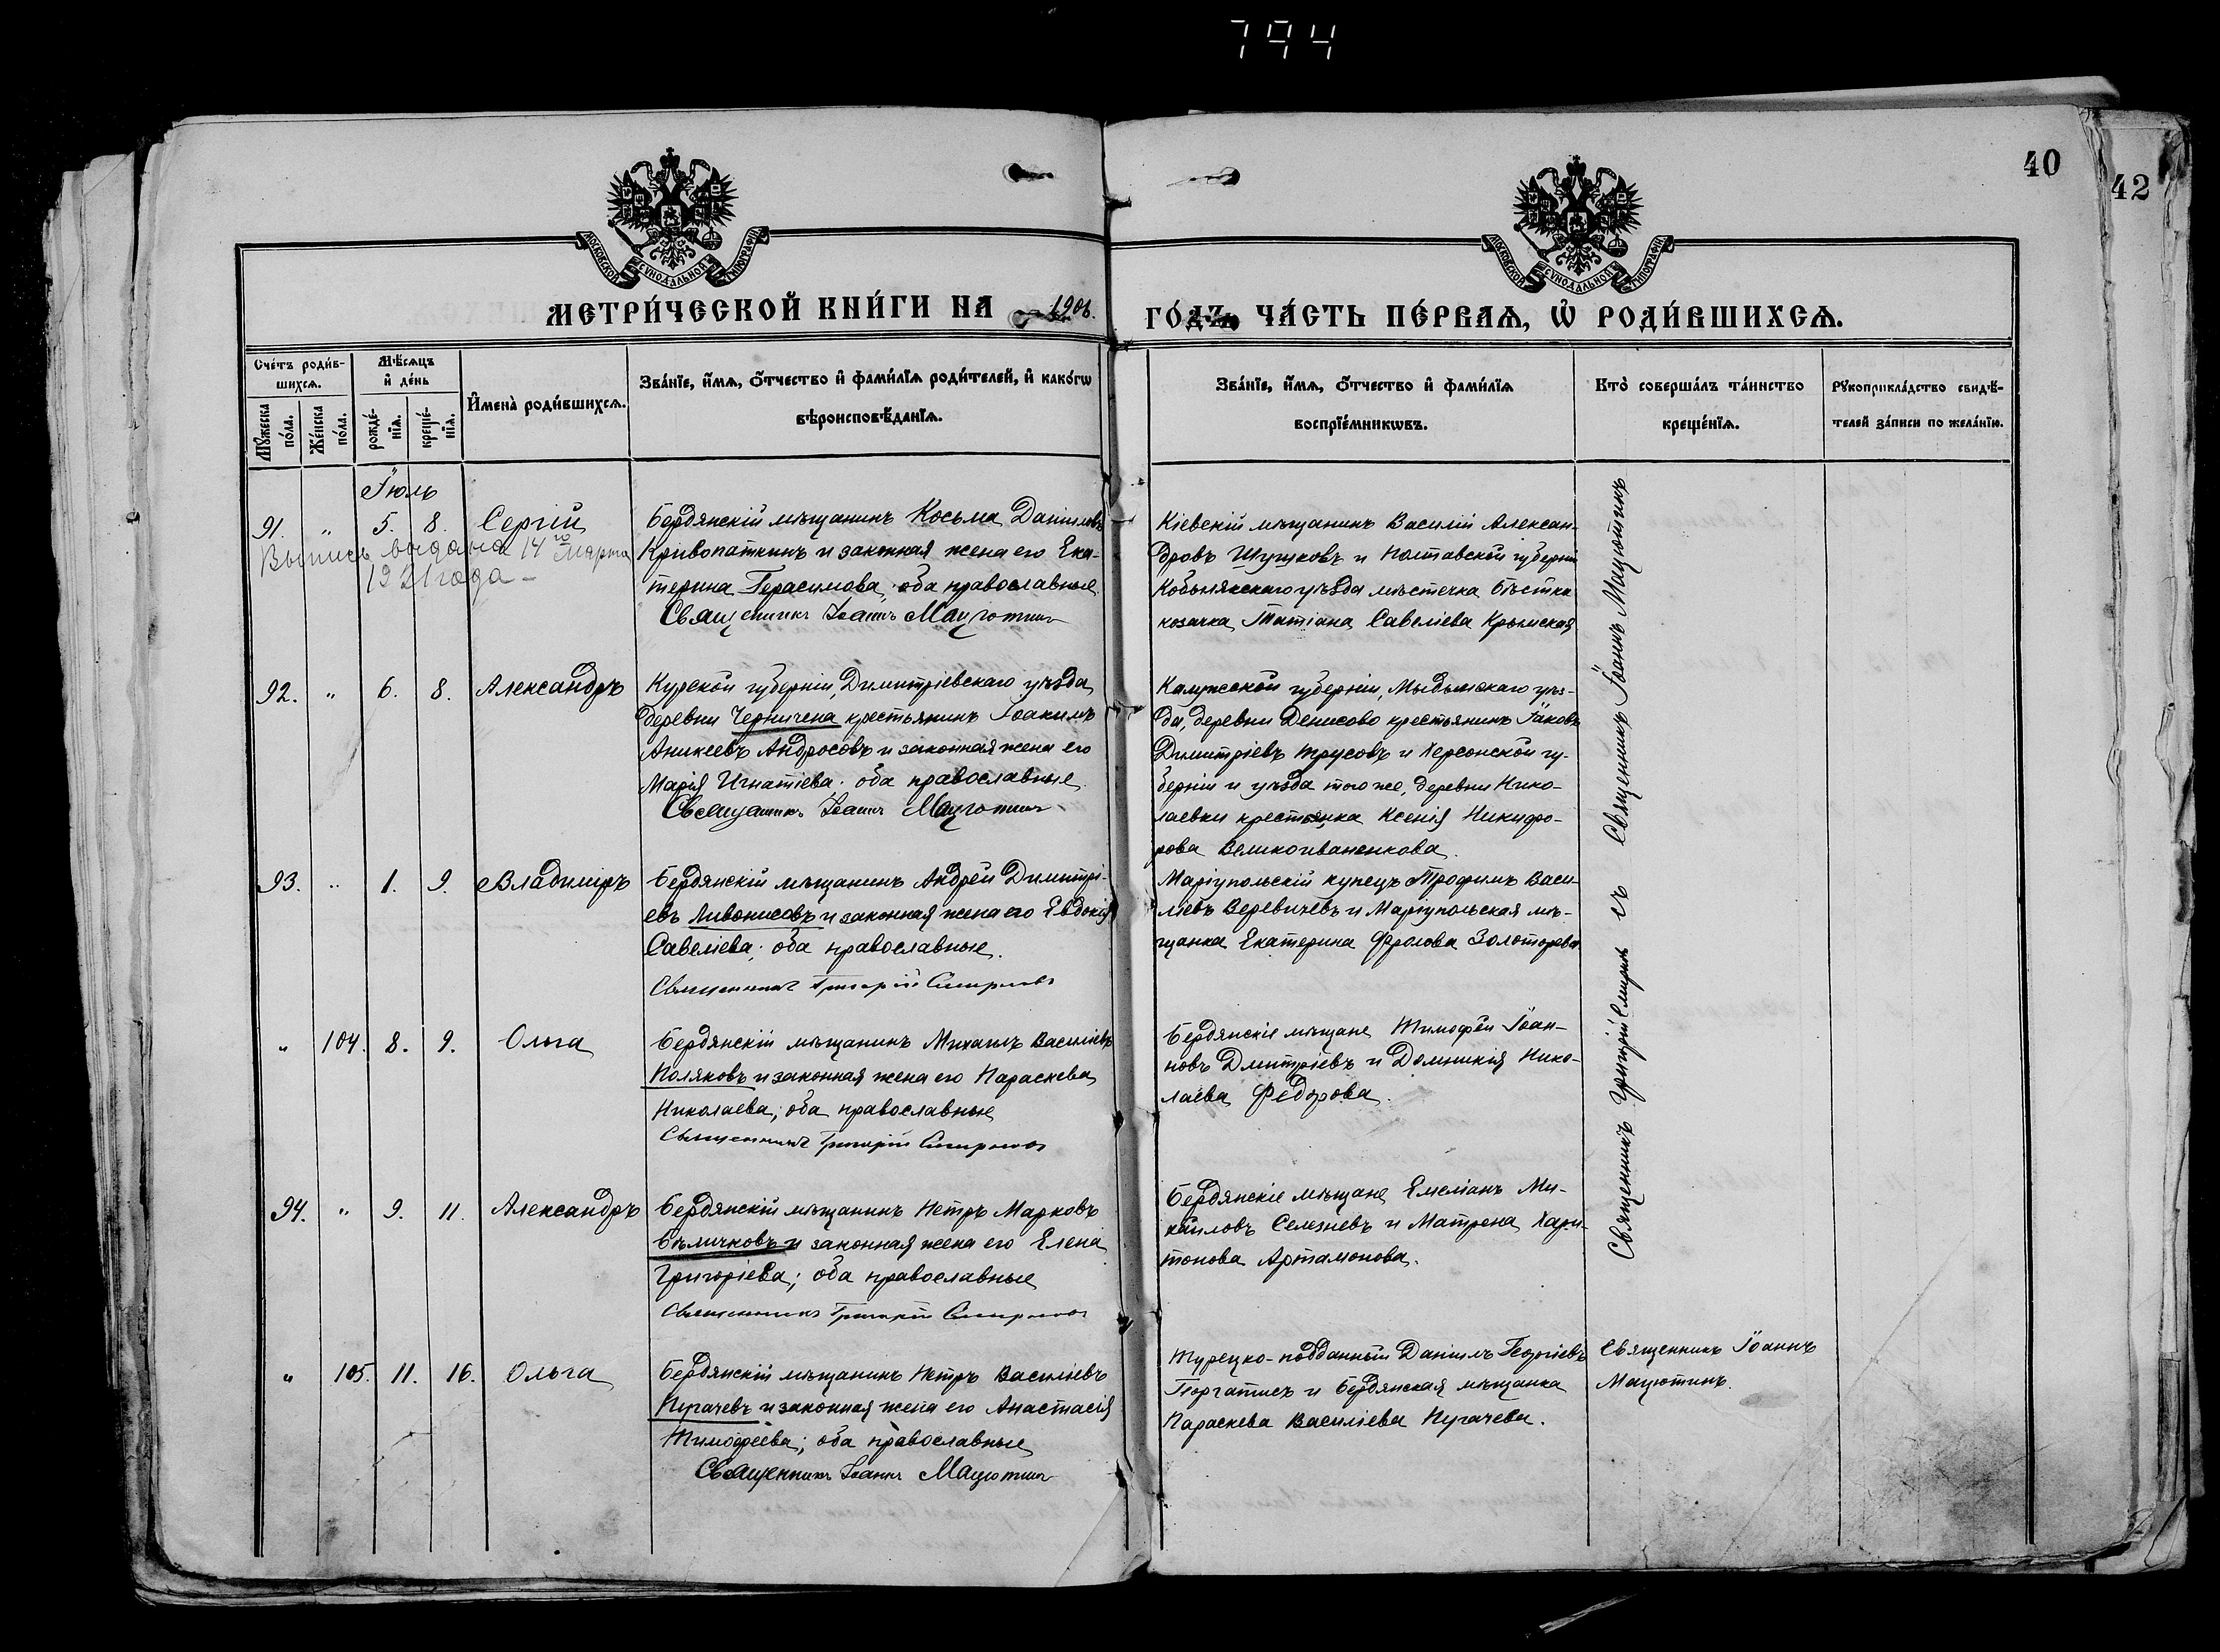 794
40
42
МОСКОВСКОЙ СѴНОДАЛЬНОЙ ТИПОГРАФІИ
МОСКОВСКОЙ СѴНОДАЛЬНОЙ ТИПОГРАФІИ
МЕТРИ́ЧЕСКОЙ КНИ́ГИ НА 1906. ГО́ДЪ, ЧА́СТЬ ПЕ́РВАѦ, Ѡ҆ РОДИ́ВШИХСѦ.
Сче́тъ роди́в-
шихсѧ.
Мꙋ́жеска по́ла.
Же́нска по́ла.
Мѣ́сѧцъ
и҆ де́нь
рожде́-
нїѧ.
креще́-
нїѧ.
И҆мена̀ роди́вшихсѧ.
Зва́нїе, и҆́мѧ, ѻ҆́тчество и҆ фами́лїѧ роди́телей, и҆ како́гѡ
вѣроисповѣ́данїѧ.
Зва́нїе, и҆́мѧ, ѻ҆́тчество и҆ фами́лїѧ
воспрїе́мникѡвъ.
Кто̀ соверша́лъ та́инство
креще́нїѧ.
Рꙋкоприкла́дство свидѣ́-
телей за́писи по жела́нїю.
Іюль
91. " 5. 8. Сергій
Выпись выдана 14го Марта
1921 года –
Бердянскій мѣщанинъ Косьма Даніиловъ
Кривопаткинъ и законная жена его Ека-
терина Герасимова; оба православные
Священникъ Іоаннъ Мацютинъ
Кіевскій мѣщанинъ Василій Алексан-
дровъ Шушковъ и Полтавской губерніи
Кобылякскаго уѣзда мѣстечка
козачка Татіана Савеліева Крымская
92. " 6. 8. Александръ
Курской губерніи, Димитріевскаго уѣзда,
деревни Черничена крестьянинъ Іоакимъ
Аникеевъ Андросовъ и законная жена его
Марія Игнатіева; оба православные
Священникъ Іоаннъ Мацютинъ
Калужской губерніи, Мыдынскаго уѣз-
да, деревни Денисово крестьянинъ Іаковъ
Димитріевъ Трусовъ и Херсонской гу-
берніи и уѣзда того же, деревни Нико-
лаевки крестьянка Ксенія Никифо-
рова Великоиваненкова.
93. " 1. 9. Владиміръ
Бердянскій мѣщанинъ Андрей Димитрі-
евъ Ливонисовъ и законная жена его Евдокія
Савеліева; оба православные.
Священникъ Григорій Смирновъ
Маріупольскій купецъ Трофимъ Васи-
ліевъ Веревичевъ и Маріупольская мѣ-
щанка Екатерина Фролова Золоторева
" 104. 8. 9. Ольга
Бердянскій мѣщанинъ Михаилъ Василіевъ
Поляковъ и законная жена его Параскева
Николаева; оба православные
Священникъ Григорій Смирновъ
Бердянскіе мѣщане Тимофей Іоан-
новъ Дмитріевъ и Домникія Нико-
лаева Федорова.
94. " 9. 11. Александръ
Бердянскій мѣщанинъ Петръ Марковъ
Бѣличковъ и законная жена его Елена
Григоріева; оба православные
Священникъ Григорій Смирновъ
Бердянскіе мѣщане Емеліанъ Ми-
хаиловъ Селезневъ и Матрона Хари-
тонова Артамонова.
Священникъ Григорій Смирновъ съ Священникъ Іоаннъ Мацютинъ
" 105. 11. 16. Ольга
Бердянскій мѣщанинъ Петръ Василіевъ
Пугачевъ и законная жена его Анастасія
Тимофеева; оба православные
Священникъ Іоаннъ Мацютинъ
Турецко-подданный Даніилъ Георгіевъ
Георгатисъ и Бердянская мѣщанка
Параскева Василіева Пугачева.
Священникъ Іоаннъ
Мацютинъ.